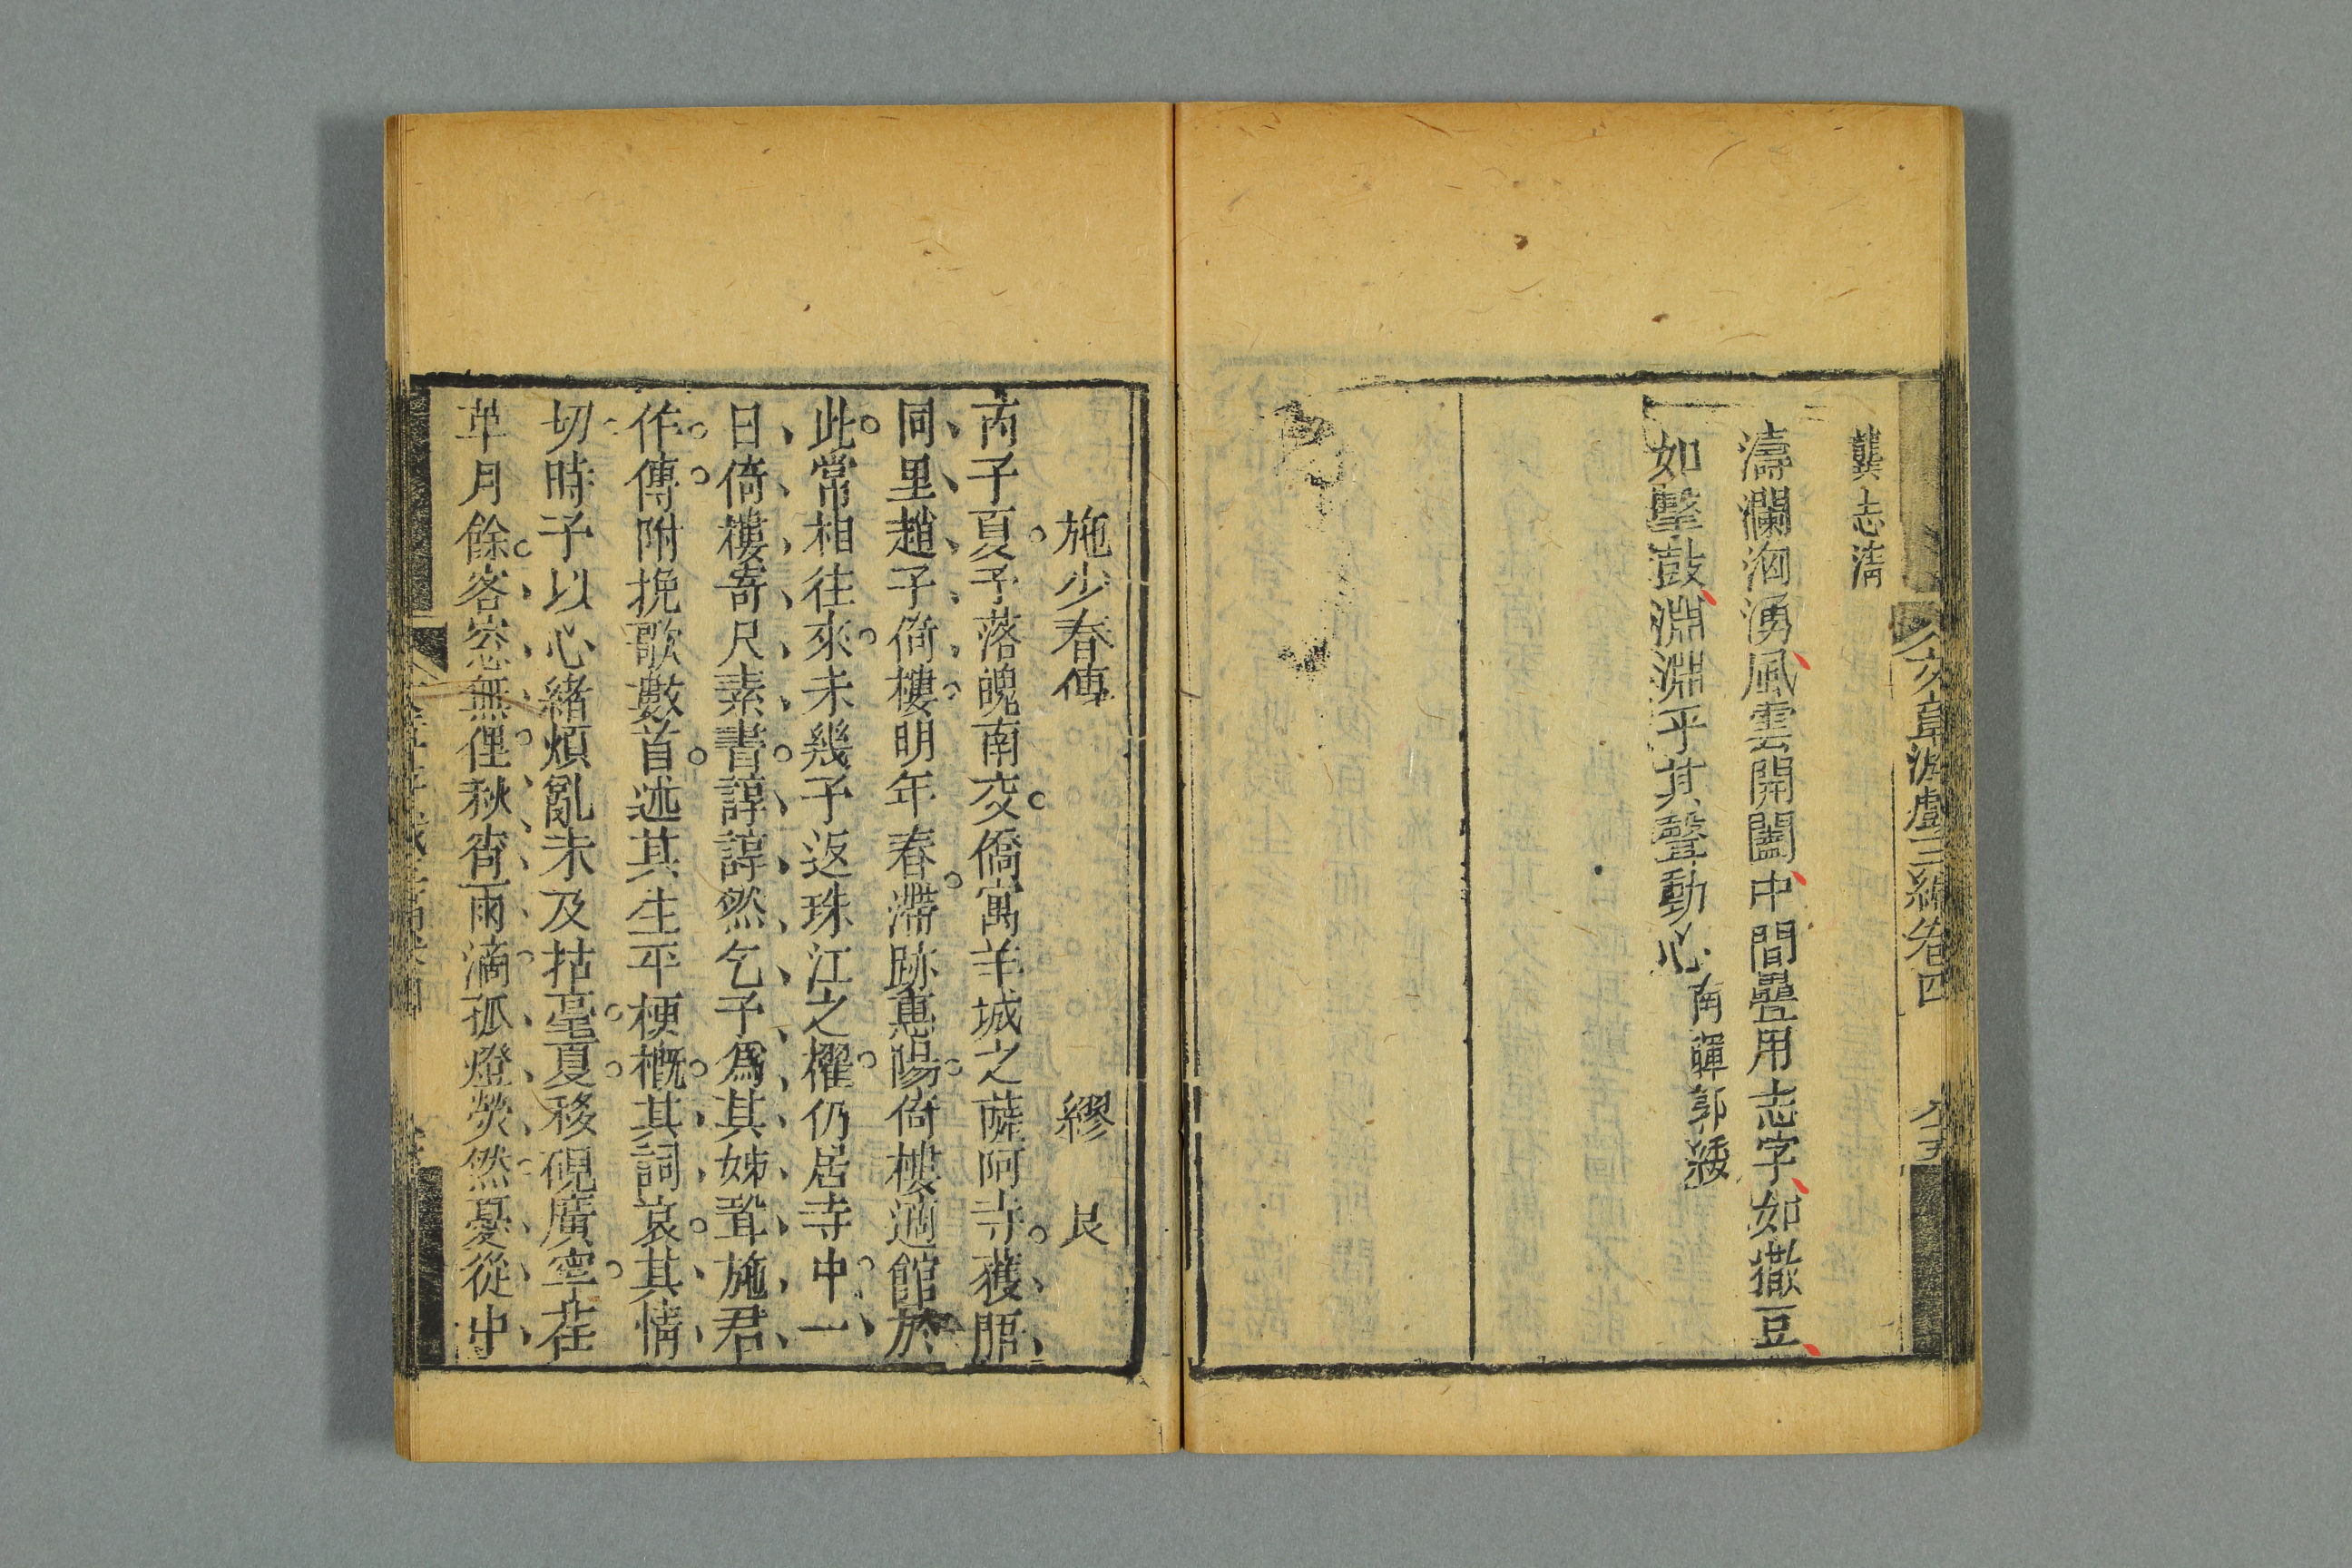 文章游戲三編卷四
龔志清
濤瀾洶湧風雲開闔中間疊用志字如撒豆
如擊鼓淵淵乎其聲動心南暉郭緌
施少春傳　繆艮
丙子夏予落魄南交僑寓羊城之薩阿寺獲
同里趙子倚樓明年春滯跡惠陽倚樓適館於
此常相往來未幾予返珠江之櫂仍居寺中一
日倚樓寄尺素書諄諄然乞予爲其姊聓施君
作傳附挽歌數首述其生平梗概其詞哀其情
切時予以心緒煩亂未及拈毫夏移硯廣寧在
草月餘客窓無俚秋宵雨滴孤燈熒然憂從中